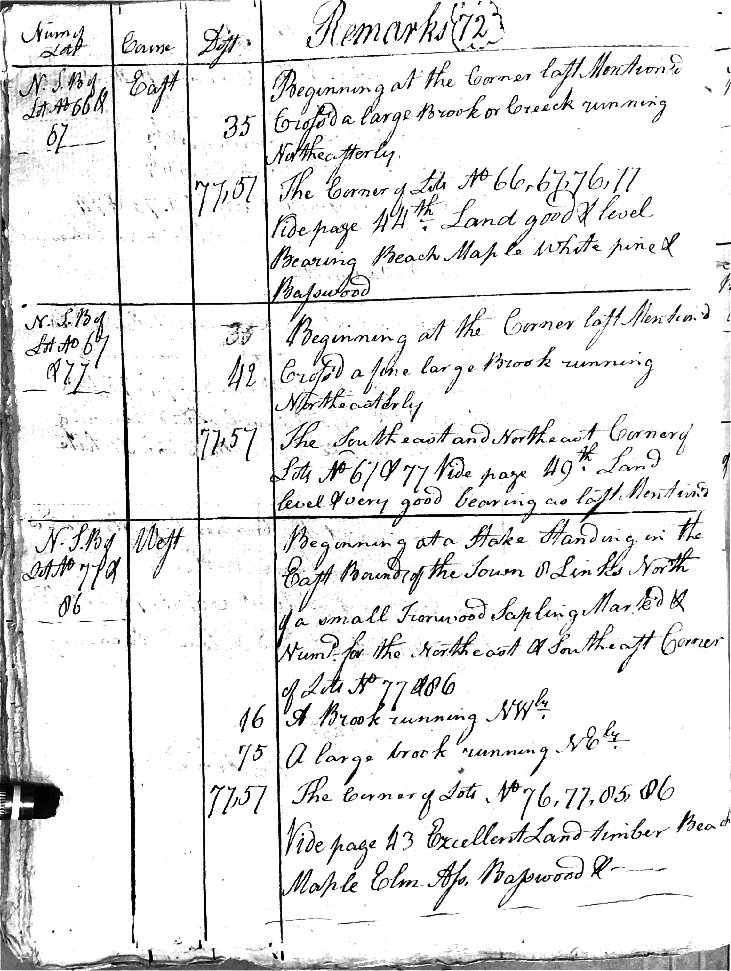 Num of Lot Course Dist Remarks (72)
N. S. B of East Beginning at the Corner last Mention'd
Lot No 66 & 35 Cross'd a large Brook or Creeck running
67 Northeasterly.
77,57 The Corner of Lots No 66, 67, 76, 77
Vide page 44th. Land good & level
Bearing Beach Maple White pine &
Basswood
N. S. B of 35 Beginning at the Corner last Mention'd
Lot No 67 42 Cross'd a fine large Brook running
& 77 Northeasterly
77,57 The Southeast and Northeast Corner of
Lots No 67 & 77 Vide page 49th. Land
level & very good bearing as last Mention'd
N. S. B of West Beginning at a Stake Standing in the
Lot No 77 & East Bounds of the Town 8 Links North
86 of a small Ironwood Sapling Mark'd &
Numd. for the Northeast & Southeast Corner
of Lots No 77 & 86
16 A Brook running NWly.
75 A large brook running NEly.
77,57 The Corner of Lots No 76, 77, 85, 86
Vide page 43 Excellent Land timber Beach
Maple Elm Ass. Basswood &